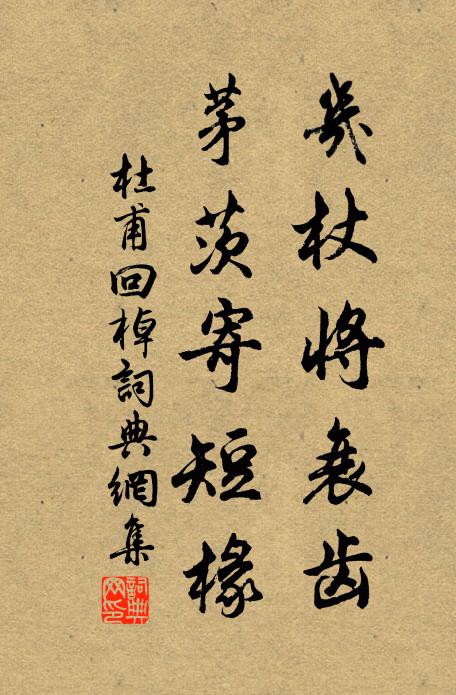 几杖将衰齿
茅茨寄短椽
杜甫回棹詞典網集
詞典網印